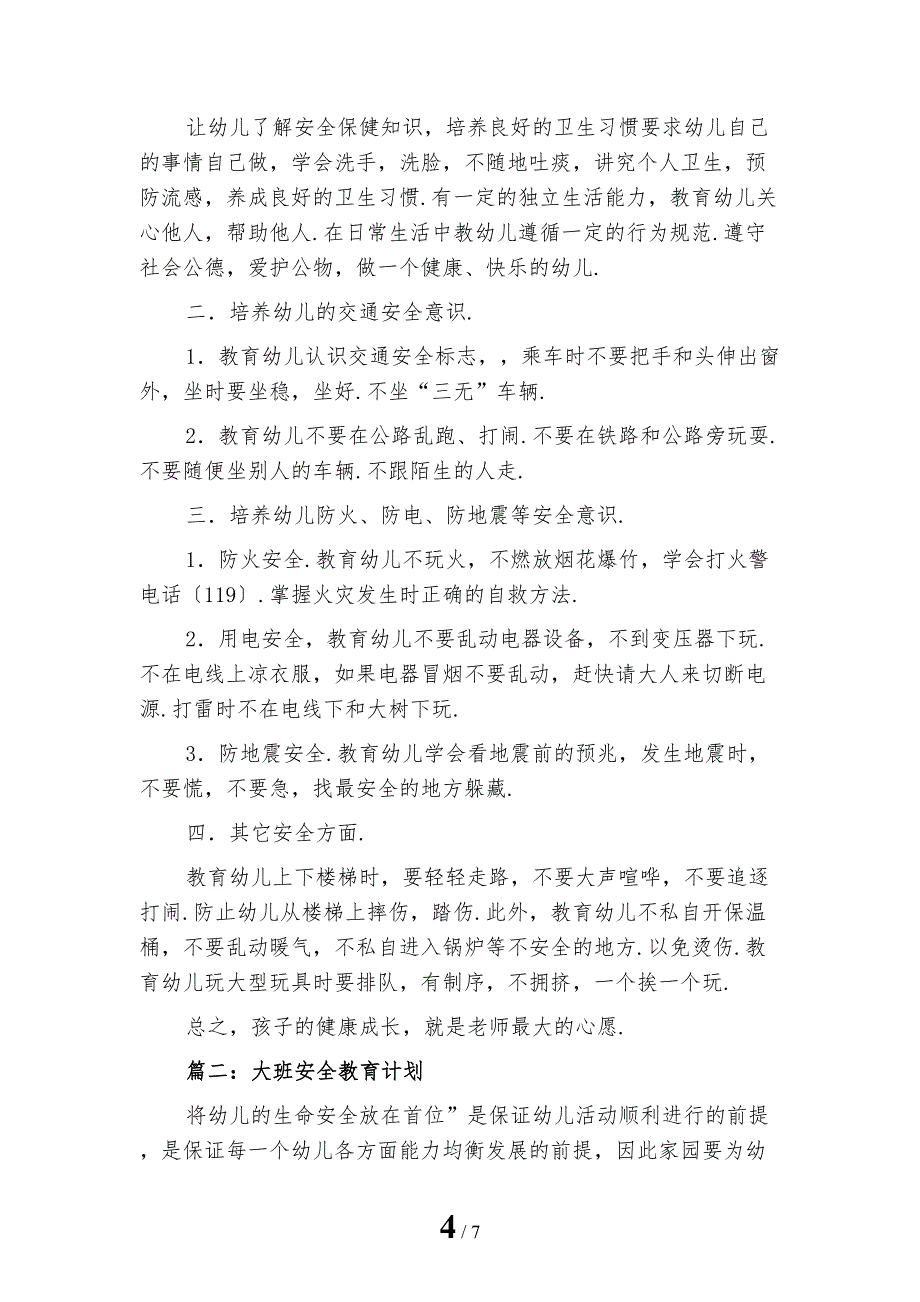 让幼儿了解安全保健知识，培养良好的卫生习惯要求幼儿自己
的事情自己做，学会洗手，洗脸，不随地吐痰，讲究个人卫生，预
防流感，养成良好的卫生习惯.有一定的独立生活能力，教育幼儿关
心他人，帮助他人.在日常生活中教幼儿遵循一定的行为规范.遵守
社会公德，爱护公物，做一个健康、快乐的幼儿.
二．培养幼儿的交通安全意识.
1．教育幼儿认识交通安全标志，，乘车时不要把手和头伸出窗
外，坐时要坐稳，坐好.不坐“三无”车辆.
2．教育幼儿不要在公路乱跑、打闹.不要在铁路和公路旁玩耍.
不要随便坐别人的车辆.不跟陌生的人走.
三．培养幼儿防火、防电、防地震等安全意识.
1．防火安全.教育幼儿不玩火，不燃放烟花爆竹，学会打火警
电话〔119〕.掌握火灾发生时正确的自救方法.
2．用电安全，教育幼儿不要乱动电器设备，不到变压器下玩.
不在电线上凉衣服，如果电器冒烟不要乱动，赶快请大人来切断电
源.打雷时不在电线下和大树下玩.
3．防地震安全.教育幼儿学会看地震前的预兆，发生地震时，
不要慌，不要急，找最安全的地方躲藏.
四．其它安全方面.
教育幼儿上下楼梯时，要轻轻走路，不要大声喧哗，不要追逐
打闹.防止幼儿从楼梯上摔伤，踏伤.此外，教育幼儿不私自开保温
桶，不要乱动暖气，不私自进入锅炉等不安全的地方.以免烫伤.教
育幼儿玩大型玩具时要排队，有制序，不拥挤，一个挨一个玩.
总之，孩子的健康成长，就是老师最大的心愿.
篇二：大班安全教育计划
将幼儿的生命安全放在首位”是保证幼儿活动顺利进行的前提
，是保证每一个幼儿各方面能力均衡发展的前提，因此家园要为幼
4 / 7